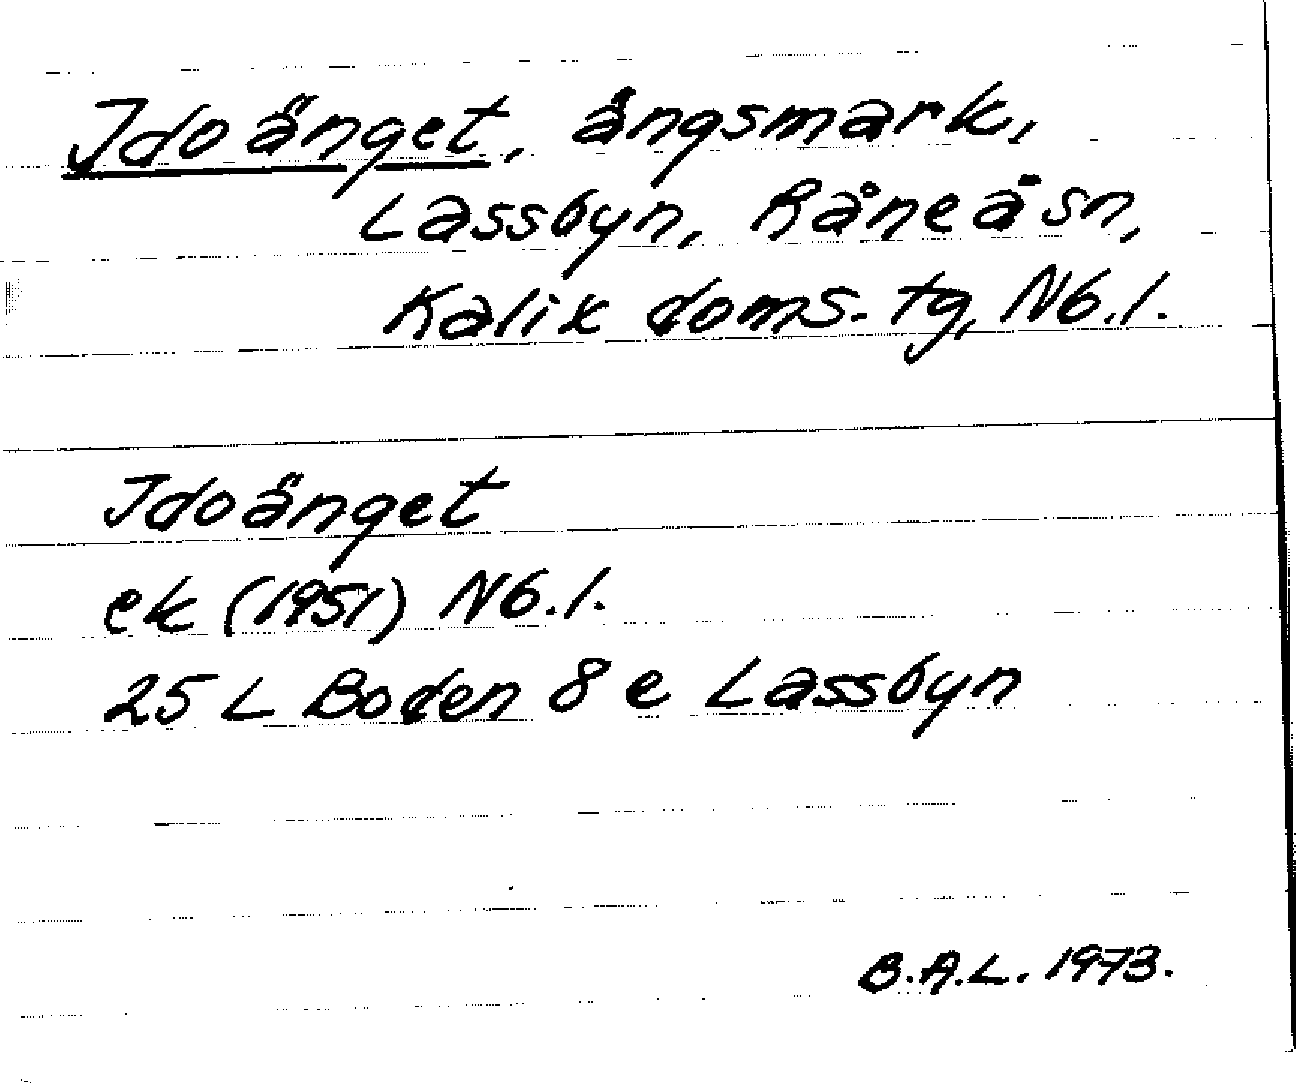 Idoänget, ängsmark,
Lassbyn, Råneå sn,
Kalix doms. tg, Nb. l.
Idoänget
ek (1951) Nb. l.
25 L Boden 8 e Lassbyn
B.A.L. 1973.